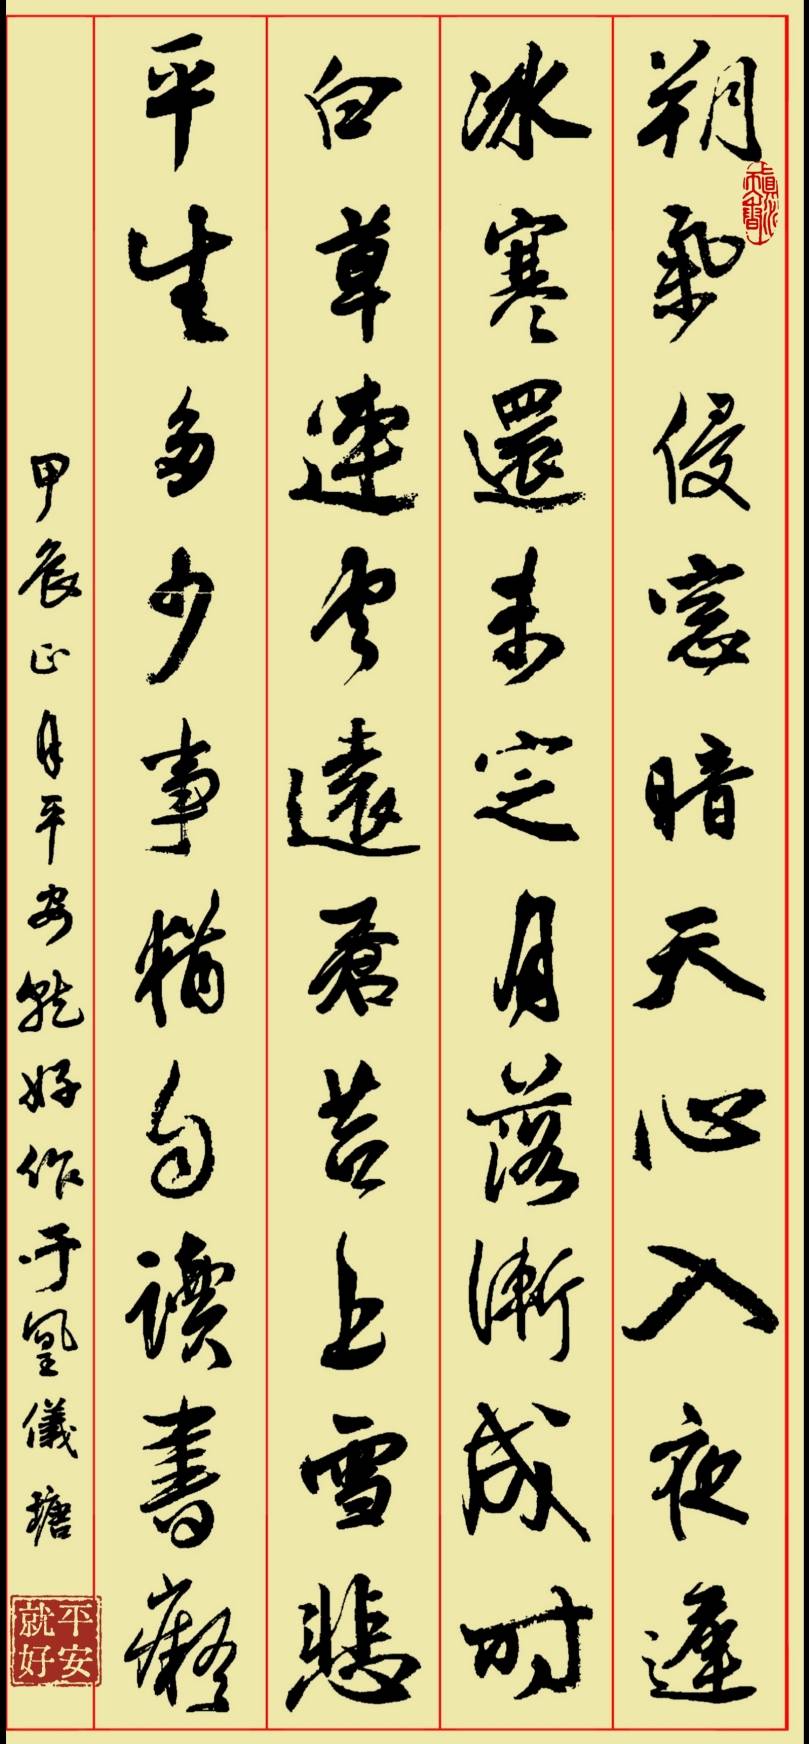 朔氣侵窓暗天心入夜遲
冰寒還未定月落漸成時
白草連雲遠蒼苔上雪悲
平生多少事猶自讀書癡
甲辰正月平安就好作于凰儀塘
平安就好